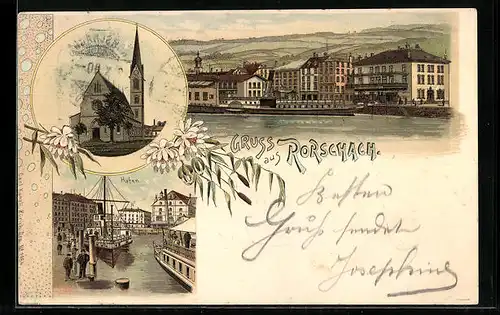 Gruss aus Rorschach.
Hafen
Besten
Gruss sendet
Josephine